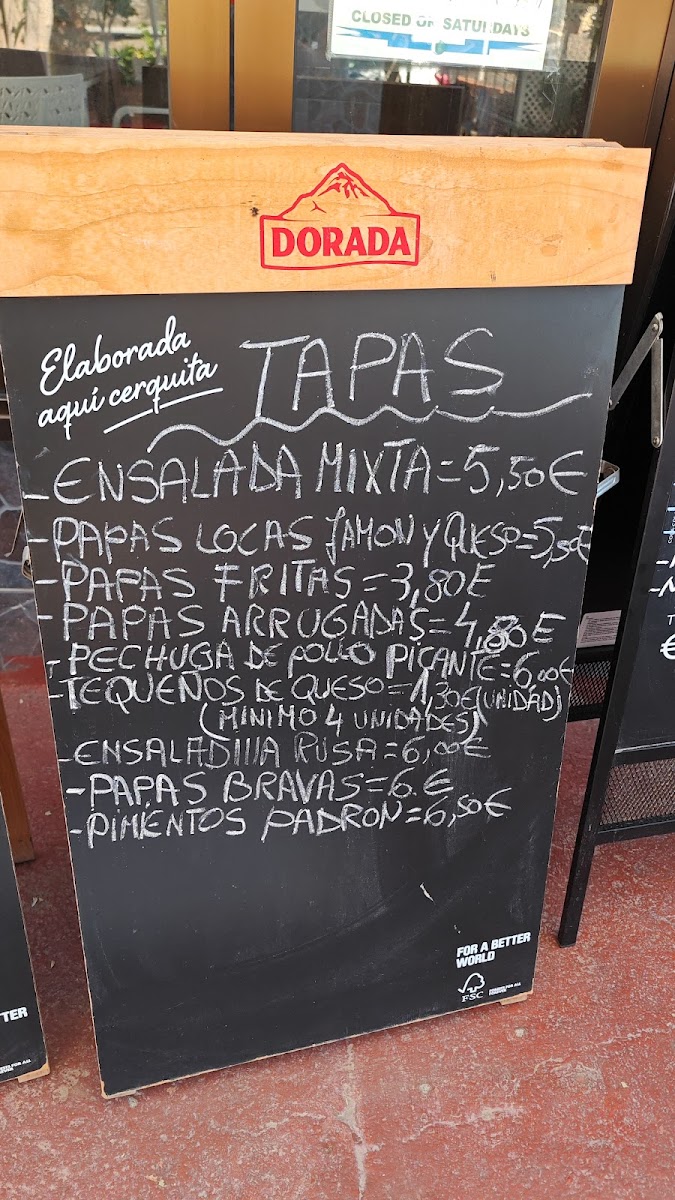 CLOSED ON SATURDAYS
DORADA
Elaborada
aquí cerquita
TAPAS
-ENSALADA MIXTA=5,50€
-PAPAS LOCAS JAMON Y QUESO=5,50€
-PAPAS FRITAS=3,80€
-PAPAS ARRUGADAS=4,80€
-PECHUGA DE POLLO PICANTE=6,00€
-TEQUEÑOS DE QUESO=1,30€(UNIDAD)
(MINIMO 4 UNIDADES)
-ENSALADILLA RUSA=6,00€
-PAPAS BRAVAS=6.€
-PIMIENTOS PADRON=6,50€
FOR A BETTER
WORLD
FSC
TER